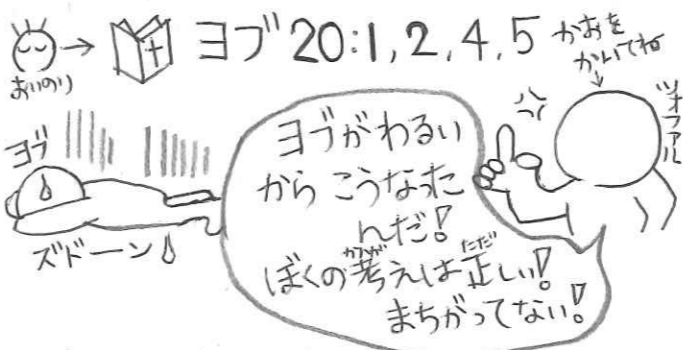 おいのり
ヨブ 20:1,2,4,5
かおを
かいてね
ツォファル
ヨブ
ズドーン
ヨブがわるい
からこうなった
んだ!
ぼくの考えは正しい!
かんが
ただ
まちがってない!